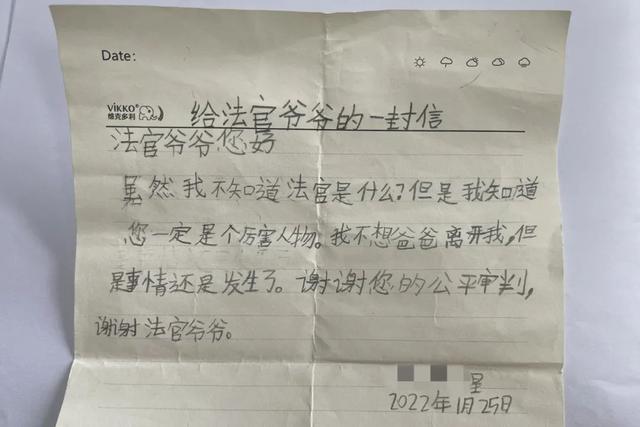 Date:
VIKKO®
维克多利
给法官爷爷的一封信
法官爷爷您好
虽然我不知道法官是什么?但是我知道
您一定是个厉害人物。我不想爸爸离开我,但
是事情还是发生了。谢谢您的公平审判,
谢谢法官爷爷。
星
2022年1月25日